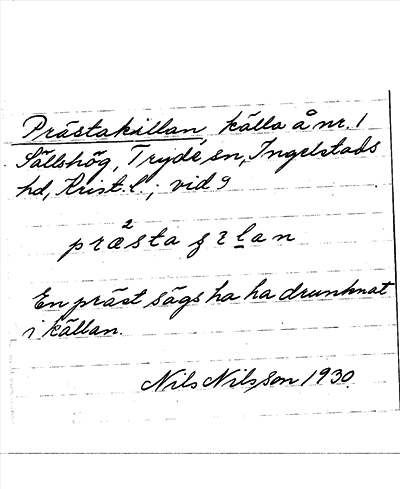 Prästakillan, källa å nr. 1
Sällshög, Tryde sn, Ingelstads
hd, Krist. l.; vid 9
2
præsta ʒ ɿ l a n
En präst sägs ha ha drunknat
i källan.
Nils Nilsson 1930